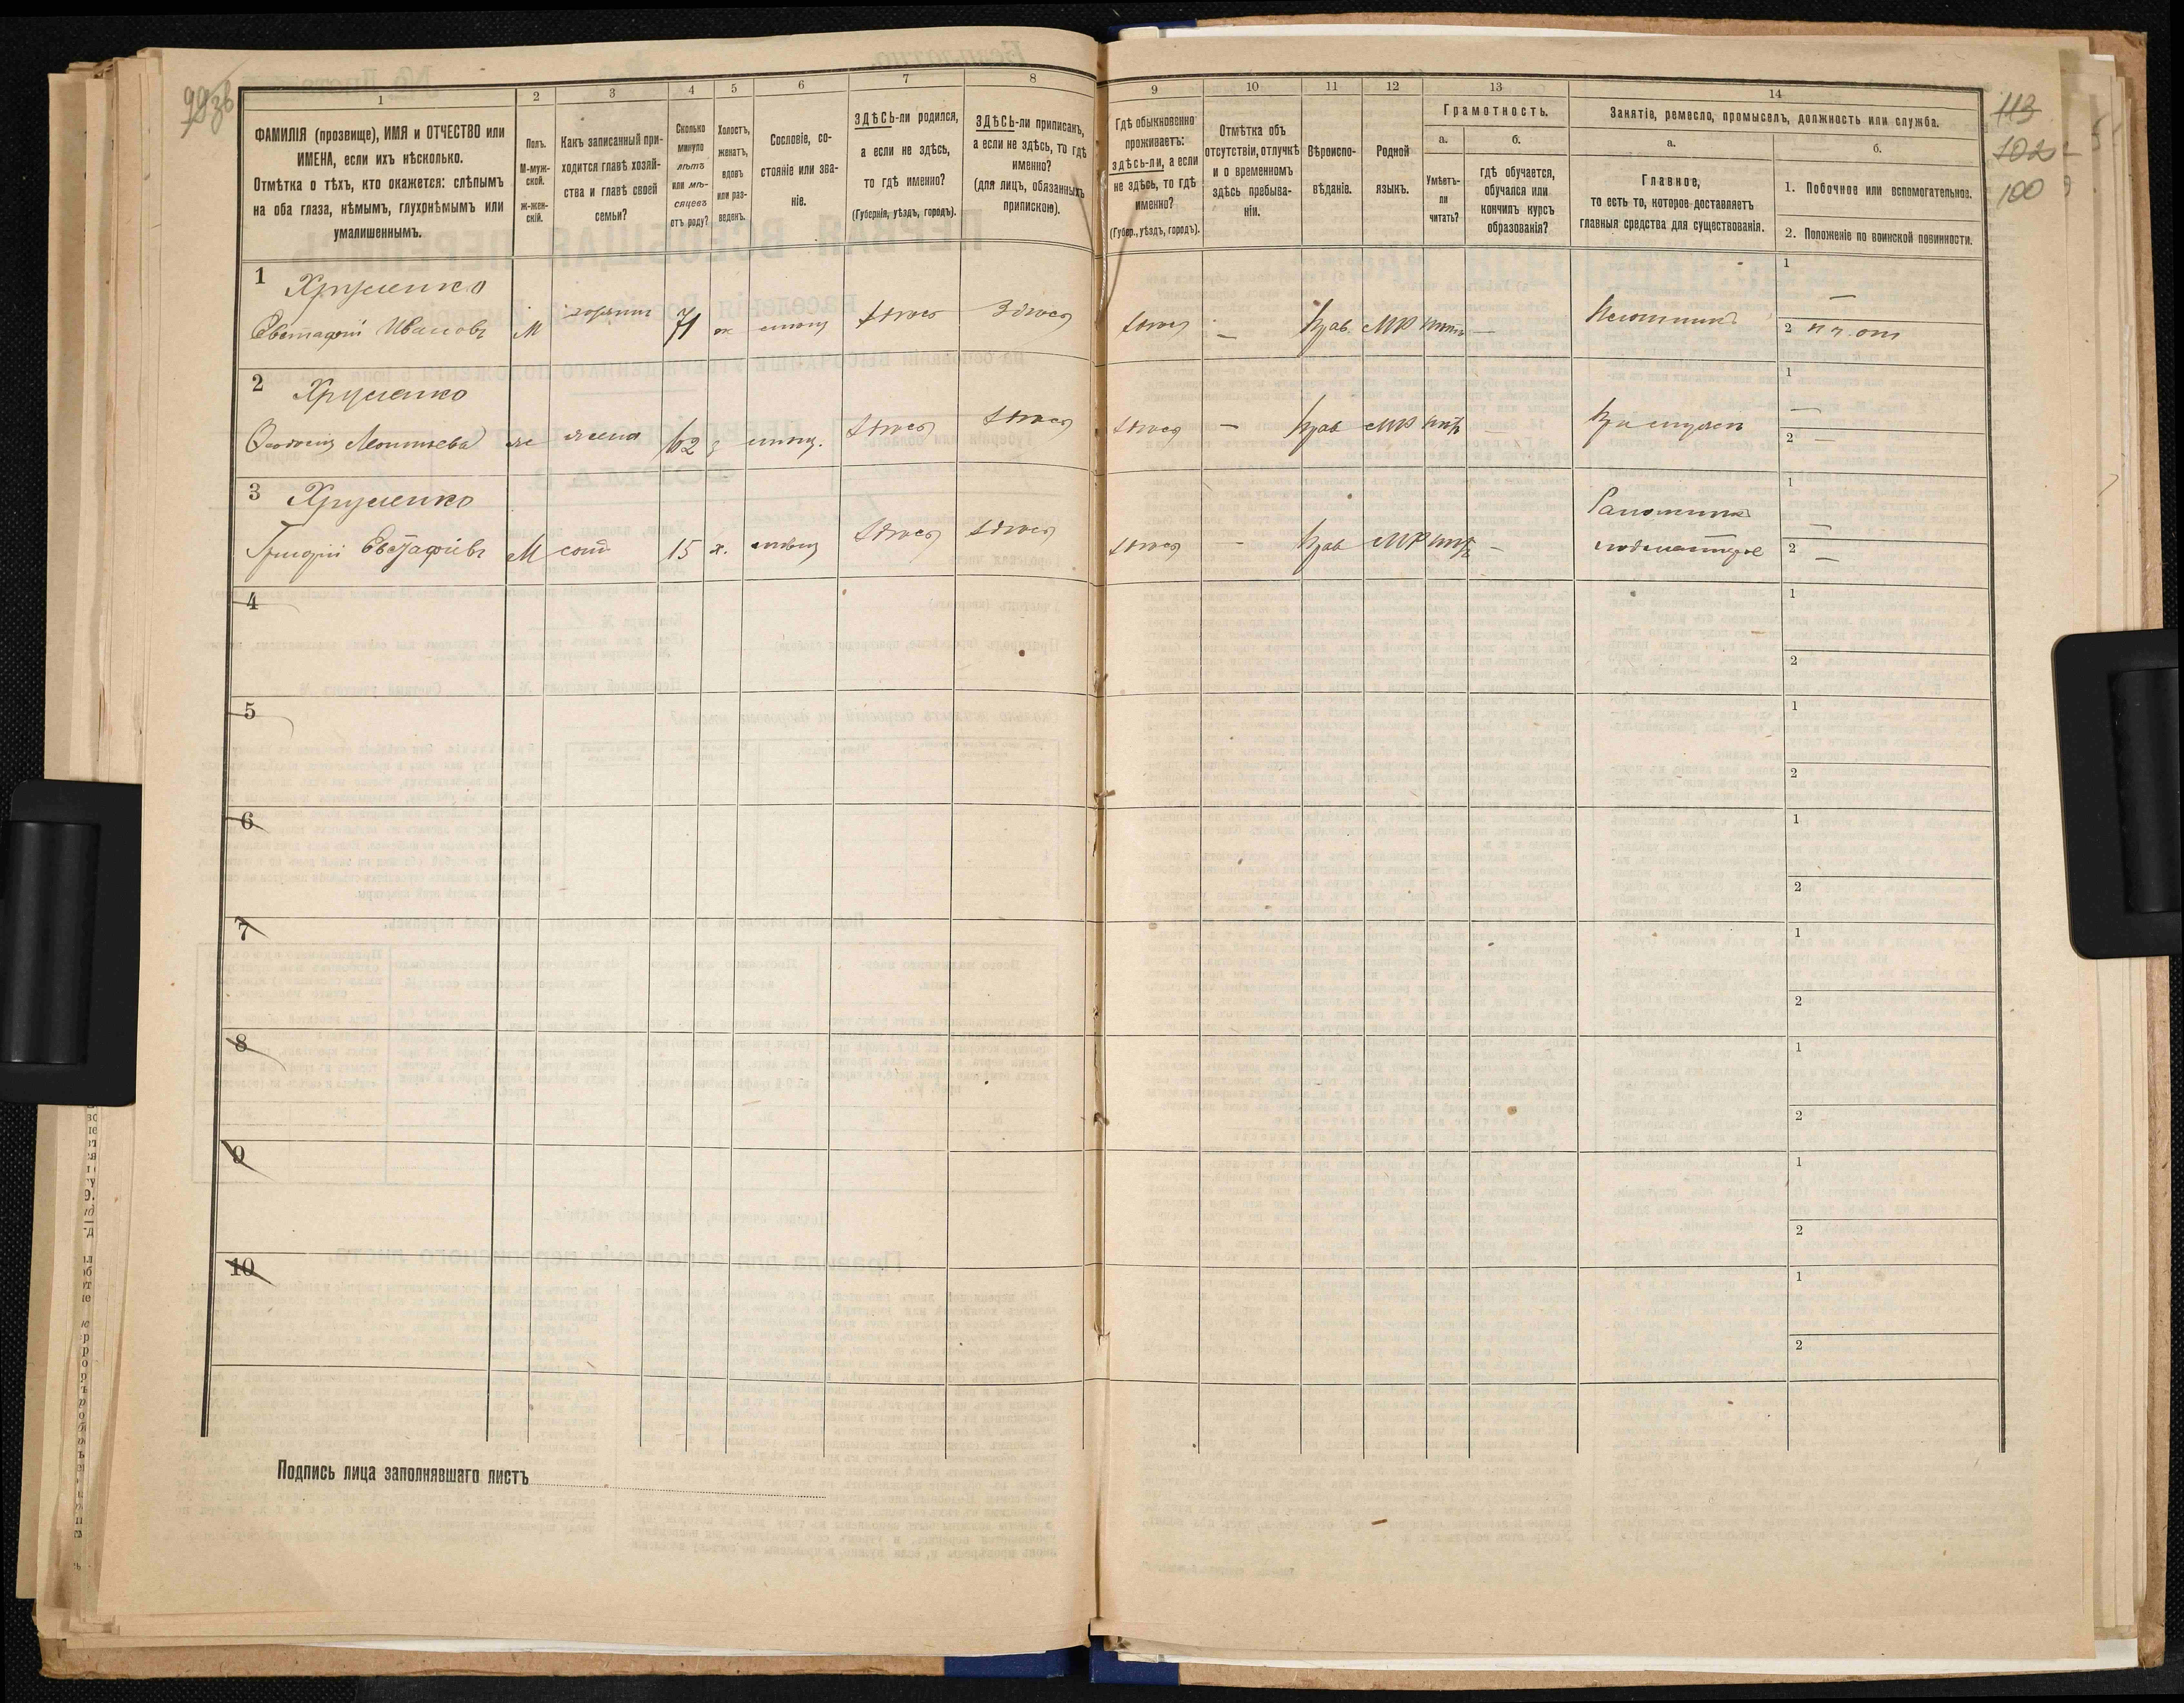 99зв
113
102
100
1
2
3
4
5
6
7
8
9
10
11
12
13
14
ФАМИЛІЯ (прозвище), ИМЯ и ОТЧЕСТВО или
ИМЕНА, если ихъ нѣсколько.
Отмѣтка о тѣхъ, кто окажется: слѣпымъ
на оба глаза, нѣмымъ, глухонѣмымъ или
умалишеннымъ.
Полъ.
М-муж-
ской.
Ж-жен-
скій.
Какъ записанный при-
ходится главѣ хозяй-
ства и главѣ своей
семьи?
Сколько
минуло
лѣтъ
или мѣ-
сяцевъ
отъ роду?
Холостъ,
женатъ,
вдовъ
или раз-
веденъ.
Сословіе, со-
стояніе или зва-
ніе.
ЗДѢСЬ-ли родился,
а если не здѣсь,
то гдѣ именно?
(Губернія, уѣздъ, городъ).
ЗДѢСЬ-ли приписанъ,
а если не здѣсь, то гдѣ
именно?
(для лицъ, обязанныхъ
припискою).
Гдѣ обыкновенно
проживаетъ:
здѣсь-ли, а если
не здѣсь, то гдѣ
именно?
(Губер., уѣздъ, городъ).
Отмѣтка объ
отсутствіи, отлучкѣ
и о временномъ
здѣсь пребыва-
ніи.
Вѣроиспо-
вѣданіе.
Родной
языкъ.
Грамотность.
а.
Умѣетъ-
ли
читать?
б.
гдѣ обучается,
обучался или
кончилъ курсъ
образованія?
Занятіе, ремесло, промыселъ, должность или служба.
а.
Главное,
то есть то, которое доставляетъ
главныя средства для существованія.
б.
1. Побочное или вспомогательное.
2. Положеніе по воинской повинности.
1 Хрущенко
Евстафій Ивановъ М 71 здѣсь Здѣсь здѣсь — Прав. МР —
1 —
2
2 Хрущенко
Леонтьева ж жена 62 здѣсь здѣсь здѣсь — Прав МР —
1 —
2 —
3 Хрущенко
Григорій Евстафіевъ М сынъ 15 х. здѣсь здѣсь здѣсь — Прав МР — Сапожникъ
подмастерье
1 —
2 —
4
1
2
5
1
2
6
1
2
7
1
2
8
1
2
9
1
2
10
1
2
Подпись лица заполнявшаго листъ